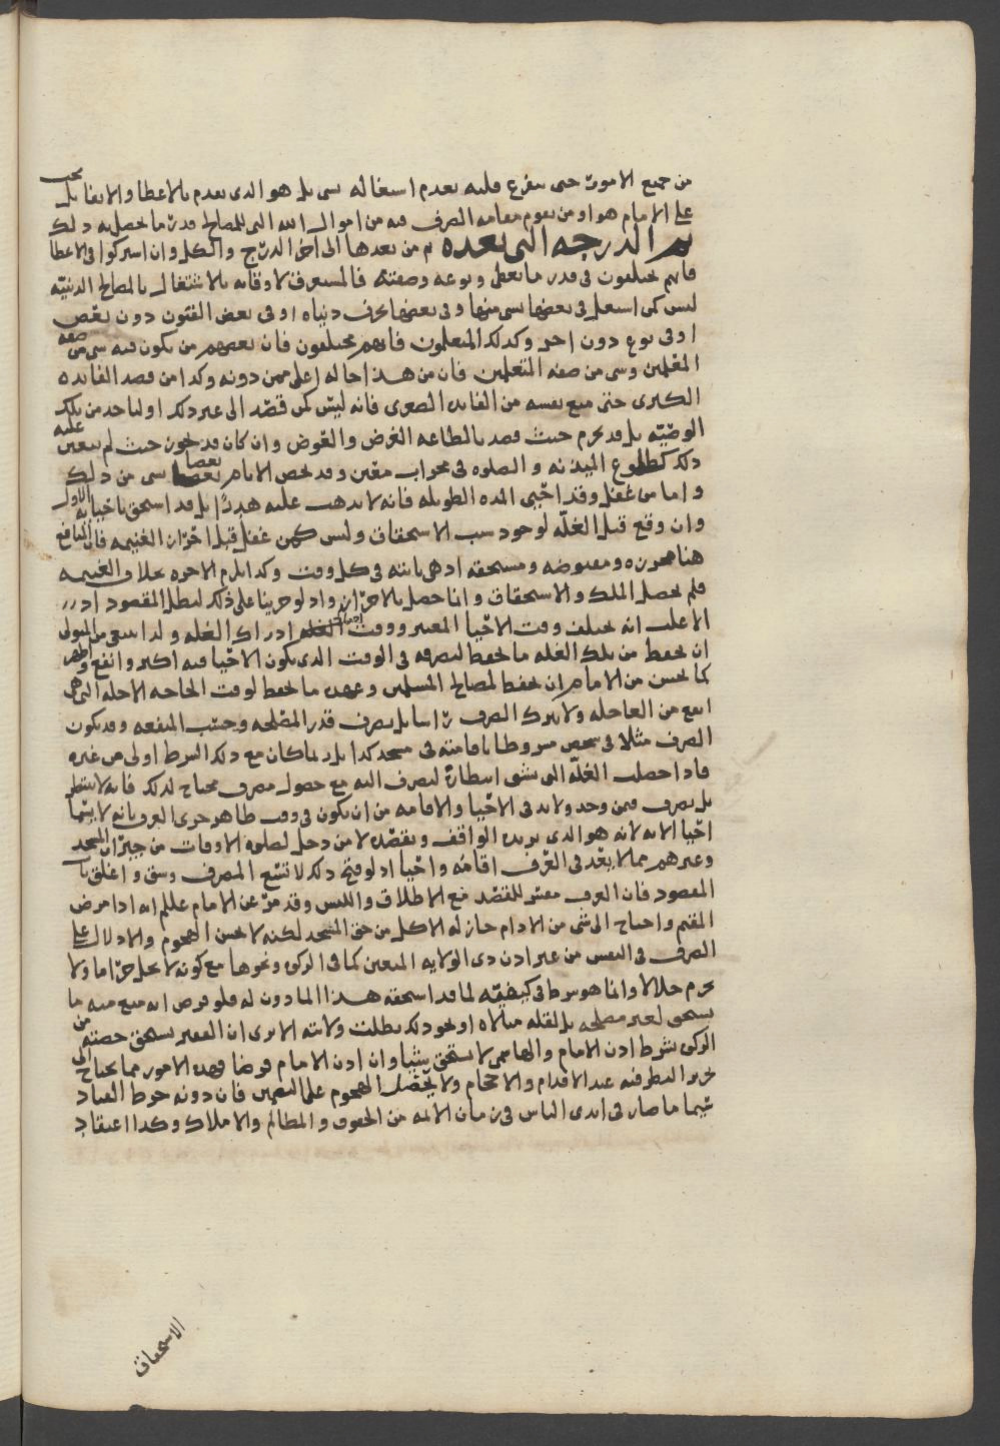 من جميع الامور حتى يتفرغ قلبه بعدم اشتغاله بشي بل هو الذي يقدم بالاعطا والايقا بل يجب
على الامام هو او من يقوم مقامه الصرف فيه من اموال الله التي للمصالح قدر ما يحصل به ذلك
ثم الدرجه التي بعده ثم من بعدها الى اخر الدرج والكل وان اشتركوا في الاعطا
فانهم مختلفون في قدر ما يعطى ونوعه وصفته فالمستغرق لاوقاته بالاشتغال بالمصالح الدينيه
ليس كمن اشتغل في بعضها بشي منها وفي بعضها بحرف دنياه او في بعض الفنون دون بعض
او في نوع دون اخر وكذلك المتعلمون فانهم مختلفون فان بعضهم من يكون فيه شي من صفه
المعلمين وشي من صفه المتعلمين فان من هذا حاله اعلى ممن دونه وكذا من قصد الفائده
الكبرى حتى منع نفسه من الفائده الصغرى فانه ليس كمن قصد الى غير ذلك او لياخذ من تلك
الوصيه بل قد يحرم حيث قصد بالطاعه الغرض والعوض وان كان قد يجوز حيث لم يتعين عليه
ذلك كطلوع الميذنه والصلوه في محراب معين وقد يخص الامام بعضا بشي من ذلك
واما من غفل وقد احيى المده الطويله فانه لا يذهب عليه هدرًا بل قد استحق باحيائه الاول
وان وقع قبل الغلّه لوجود سبب الاستحقاق وليس كمن غفل قبل احراز الغنيمه فان المنافع
هنا محرزه ومقبوضه ومستحقه اذ هي باينه في كل وقت وكذا يلزم الاجره بخلاف الغنيمه
فلم يحصل الملك والاستحقاق وانما حصل بالاحراز واذ لو جرينا على ذلك لبطل المقصود اذ
الاغلب انه يختلف وقت الاحيا المعتبر ووقت ادراك الغله ولذا ينبغي من المتولى
ان يحفظ من تلك الغله ما يحفظ ليصرفه في الوقت الذي يكون الاحيا فيه اكثر وانفع
كما يحسن من الامام ان يحفظ لمصالح المسلمين وعهده ما يحفظ لوقت الحاجه الاجله التي هي
انفع من العاجله ولا يترك الصرف راسا بل يصرف قدر المصلحه وحسب المنفعه وقد يكون
الصرف مثلا في شخص مشروطا باقامته في مسجد كذا بل ربما كان مع ذلك الشرط اولى من غيره
فاذا حصلت الغلّه التي شق انتظاره ليصرف اليه مع حصول مصرف محتاج لذلك فانه لا ينتظر
بل يصرف فيمن وجد ولا بد في الاحيا والاقامه من ان يكون في وقت ظاهر جرى العرف بانه لا يسما
احيا الا به لانه هو الذي يريده الواقف ويقصده لا من دخل لصلوه الاوقات من جيران المسجد
وغيرهم مما لا يعد في العرف اقامه واحيا اذ لو فتح ذلك لاتسع المصرف وشق واغلق باب
المقصود فان العرف معتبر للقصد مع الاطلاق واللبس وقد مرّ عن الامام عليلم انه اذا مرض
المقيم واحتاج الى شي من الادام جاز له الاكل من حق المسجد لكنه لا يحسن الهجوم والادلال على
الصرف في النفس من غير اذن ذي الولايه المعين كما في الزكوه ونحوها مع كونه لا يحل حراما ولا
يحرم حلالا وانما هو شرط في كيفيته لما قد استحقه هذا الماذون له فلو فرض انه منع منه ما
يستحق لغير مصلحه بل لقله مبالاه او نحو ذلك بطلت ولايته الا ترى ان الفقير يستحق حصته من
الزكوه بشرط اذن الامام والهاشمي لا يستحق شيئا وان اذن الامام فرضا فهذه الامور مما يحتاج الى
تحرير النظر فيه عند الاقدام والاحجام ولا يحصل الهجوم على اليقين فان دونه خرط القتاد
سيما ما صار في ايدي الناس في زمان الايمه من الحقوق والمظالم والاملاك وكذا اعتقاد
الاستحقاق